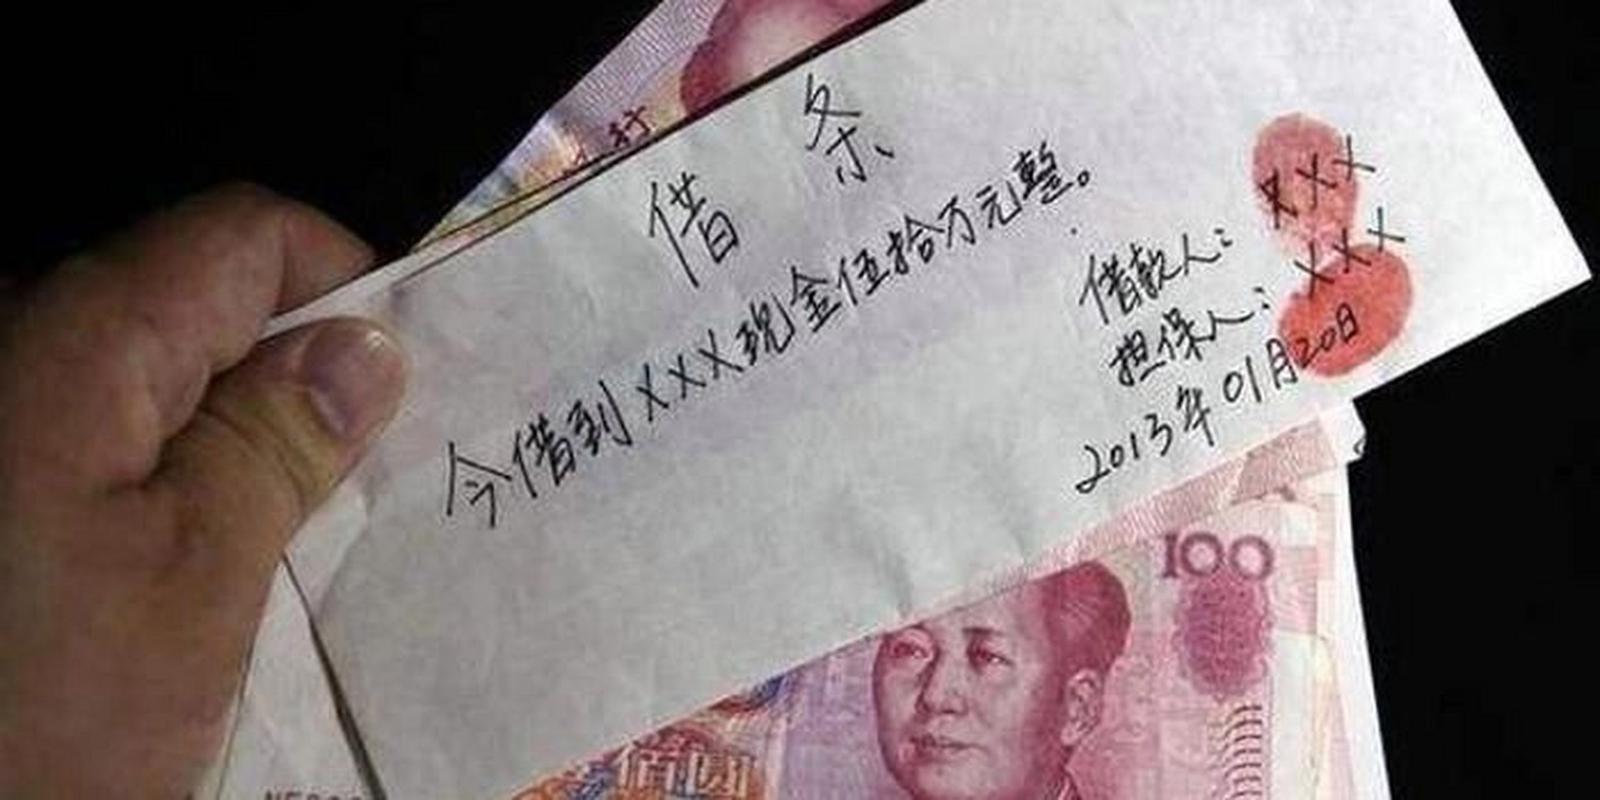 借 条
今借到XXX现金伍拾万元整。
借款人：XXX
担保人：XXX
2013年01月20日
100
佰圆